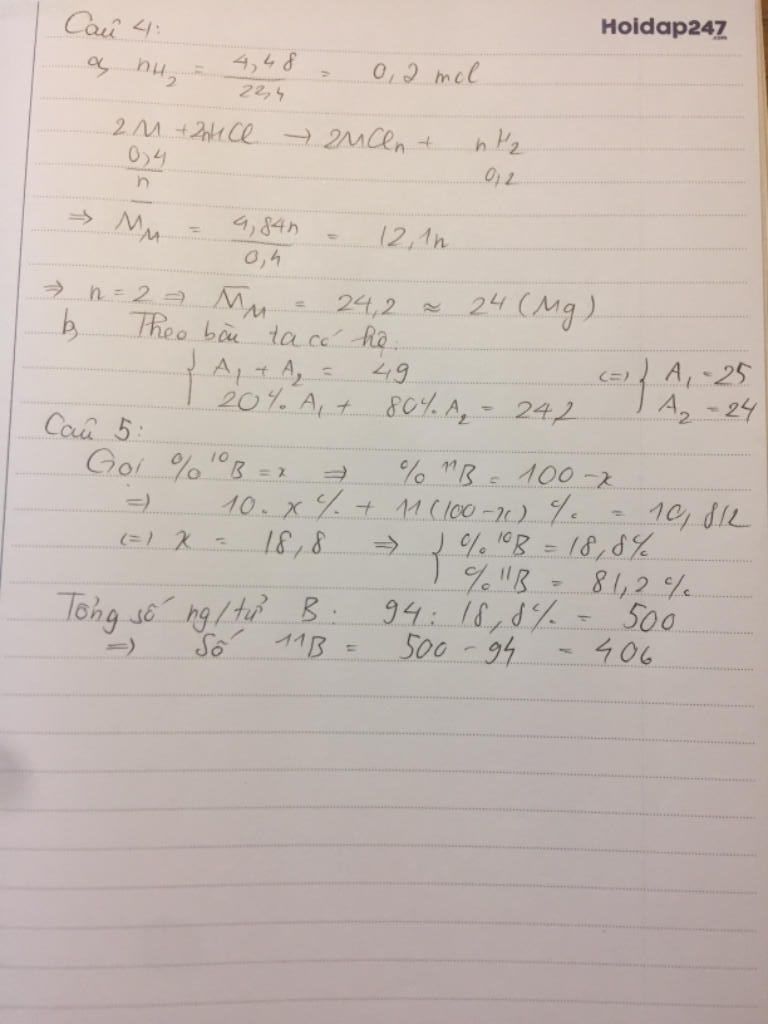 Câu 4:
Hoidap247.com
a, nH₂ = 4,48/22,4 = 0,2 mol
2M + 2nHCl → 2MCln + nH₂
0,4/n 0,2
=> M̄M = 4,84n/0,4 = 12,1n
=> n = 2 => M̄M = 24,2 ≈ 24 (Mg)
b, Theo bài ta có hệ:
{ A₁ + A₂ = 49 (=) { A₁ = 25
20% A₁ + 80% A₂ = 24,2 A₂ = 24
Câu 5:
Gọi % ¹⁰B = x => % ¹¹B = 100 - x
=> 10. x % + 11(100-x) % = 10,812
(=) x = 18,8 => { % ¹⁰B = 18,8%
% ¹¹B = 81,2 %
Tổng số ng/tử B: 94 : 18,8% = 500
=> Số ¹¹B = 500 - 94 = 406